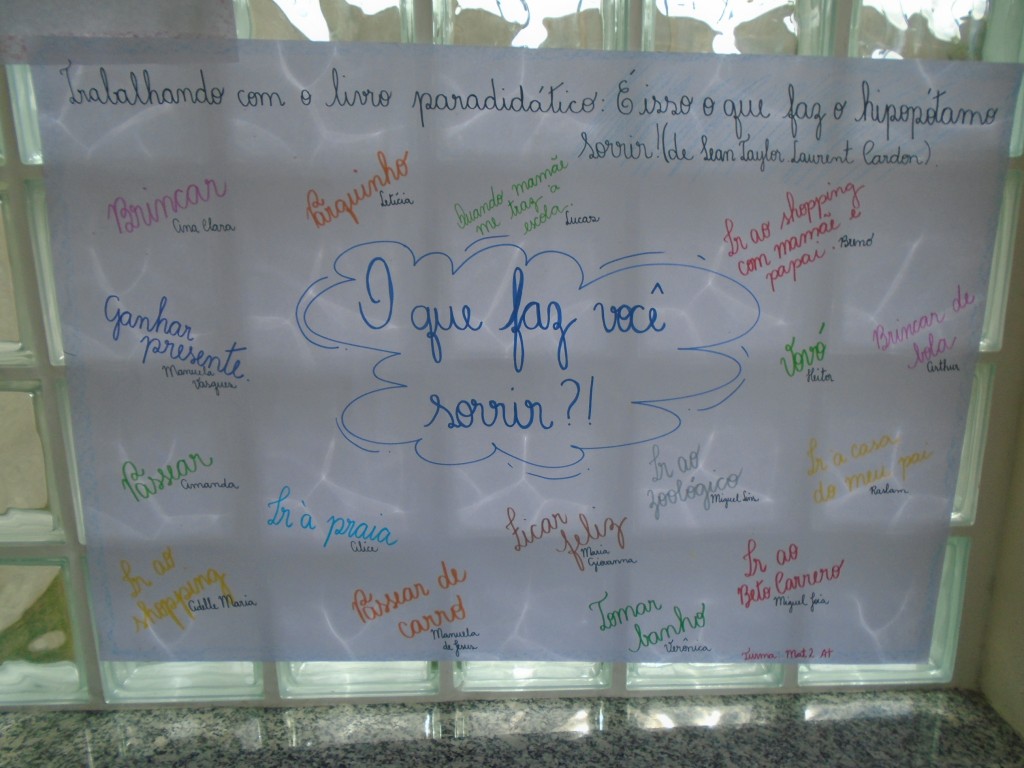 Trabalhando com o livro paradidático: É isso o que faz o hipopótamo
sorrir!! (de Sean Taylor Laurent Cardon).
Brincar
Ana Clara
Parquinho
Letícia
Quando mamãe
me traz à
escola.
Lucas
Ir ao shopping
com mamãe e
papai.
Breno
O que faz você
sorrir?!
Ganhar
presente.
Manuela
Vasques
Vovó
Heitor
Brincar de
bola
Arthur
Passear
Amanda
Ir à praia
Alice
Ficar
feliz
Maria
Giovanna
Ir ao
zoológico
Miguel
Ir a casa
do meu pai
Ir ao
shopping
Adélle Maria
Passear de
carro
Manuela
de Jesus
Tomar
banho
Verônica
Ir ao
Beto Carrero
Miguel
Turma: Mat 2 A